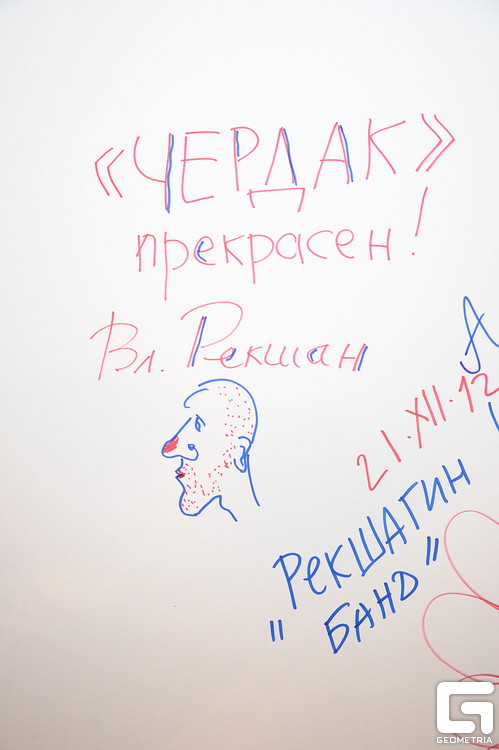 «ЧЕРДАК»
прекрасен!
Вл. Рекшан
21.XII.12
РЕКШАГИН
"БАНД"
GEOMETRIA